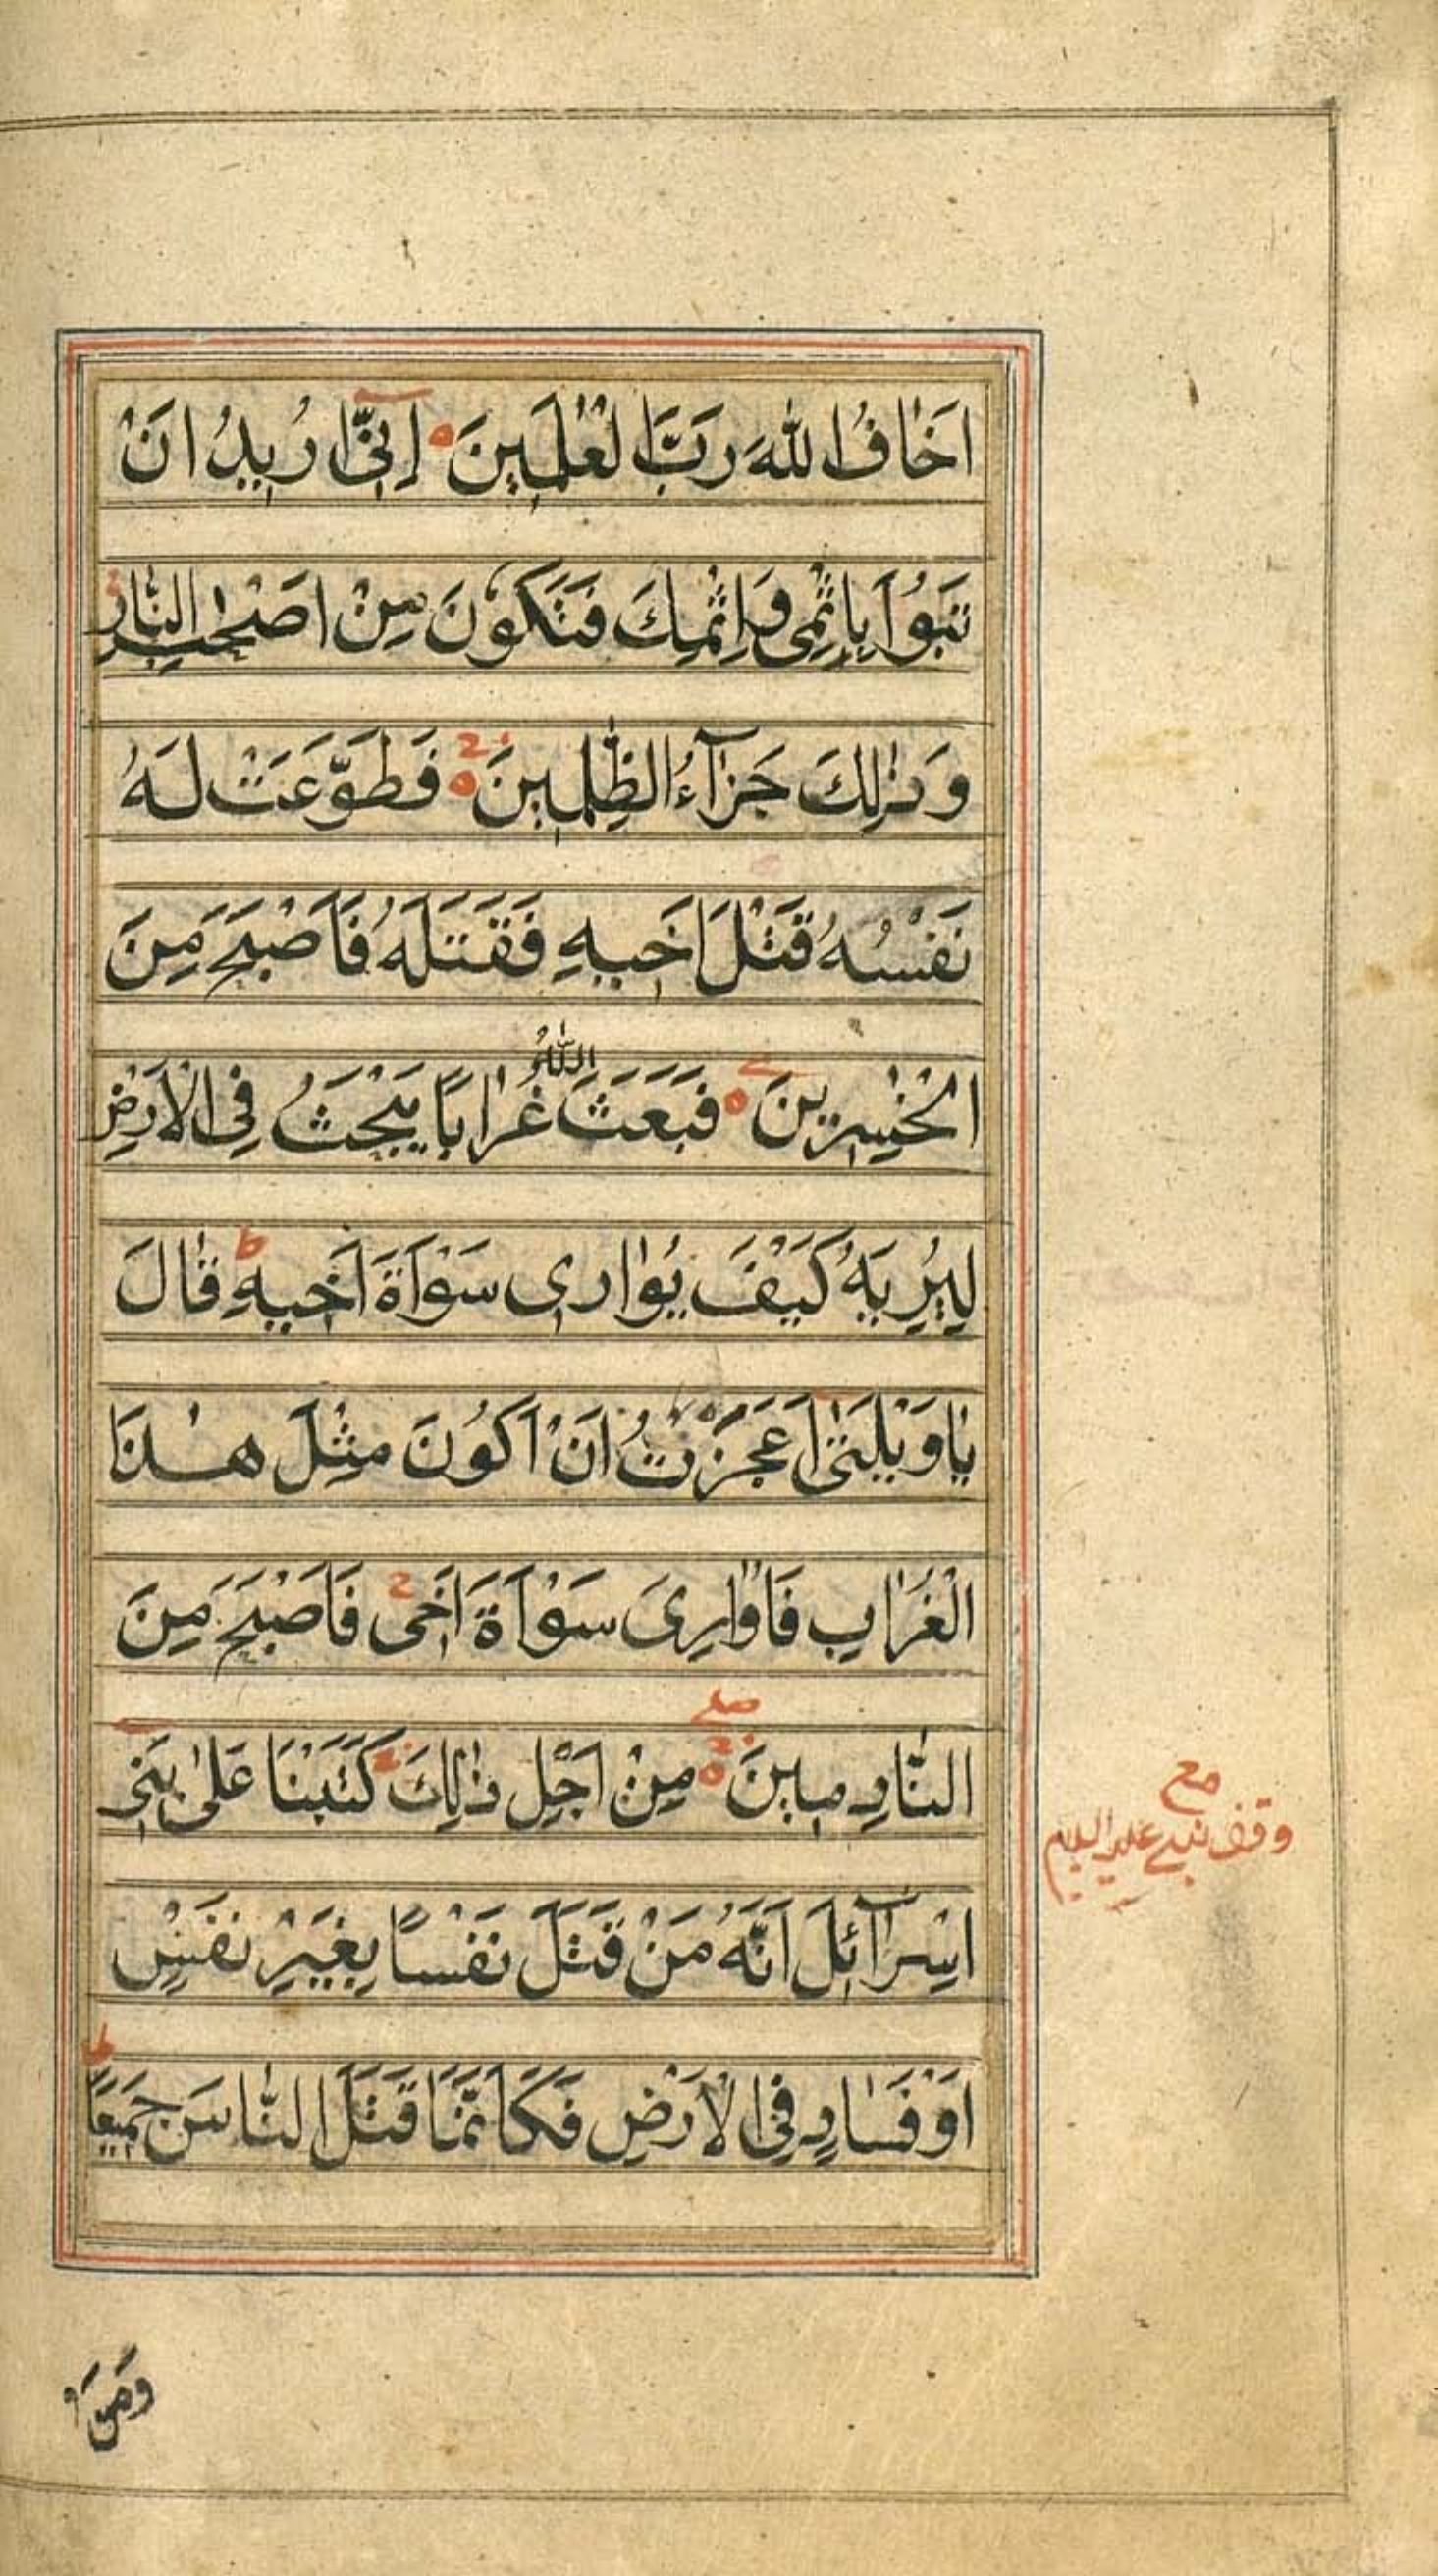 اَخَافُ اللهَ رَبَّ الْعٰلَمِينَ ۝ اِنِّىٓ اُرِيدُ اَنْ
تَبُوْٓاَ بِاِثْمِى وَاِثْمِكَ فَتَكُوْنَ مِنْ اَصْحٰبِ النَّارِ
وَذٰلِكَ جَزَآءُ الظّٰلِمِينَ ۝ فَطَوَّعَتْ لَهُ
نَفْسُهُ قَتْلَ اَخِيهِ فَقَتَلَهُ فَاَصْبَحَ مِنَ
الْخٰسِرِينَ ۝ فَبَعَثَ اللّٰهُ غُرَابًا يَبْحَثُ فِى الْاَرْضِ
لِيُرِيَهُ كَيْفَ يُوَارِى سَوْاَةَ اَخِيهِ ط قَالَ
يَاوَيْلَتٰىٓ اَعَجَزْتُ اَنْ اَكُوْنَ مِثْلَ هٰذَا
الْغُرَابِ فَاُوَارِىَ سَوْاَةَ اَخِى ج فَاَصْبَحَ مِنَ
النَّادِمِينَ ۝ ج صلے مِنْ اَجْلِ ذٰلِكَ ج كَتَبْنَا عَلٰى بَنِىٓ
اِسْرَآئِلَ اَنَّهُ مَنْ قَتَلَ نَفْسًا بِغَيْرِ نَفْسٍ
اَوْ فَسَادٍ فِى الْاَرْضِ فَكَاَنَّمَا قَتَلَ النَّاسَ جَمِيعًا ط
مع
وقف نبى عليه السلام
وَمَنْ